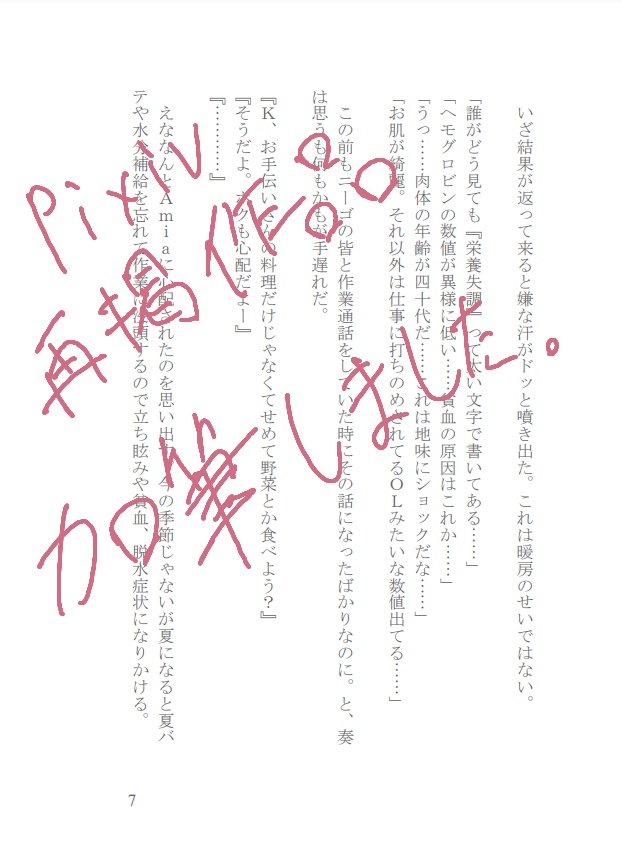 いざ結果が返って来ると嫌な汗がドッと噴き出た。これは暖房のせいではない。
「誰がどう見ても『栄養失調』って太い文字で書いてある……」
「ヘモグロビンの数値が異様に低い……貧血の原因はこれか……」
「うっ……肉体の年齢が四十代だ……これは地味にショックだな……」
「お肌が綺麗。それ以外は仕事に打ちのめされてるOLみたいな数値出てる……」
この前もニーゴの皆と作業通話をしていた時にその話になったばかりなのに。と、奏
は思うも何もかもが手遅れだ。
『K、お手伝いさんの料理だけじゃなくてせめて野菜とか食べよう？』
『そうだよ。ボクも心配だよー』
『…………』
えななんとAmiaに心配されたのを思い出す。今の季節じゃないが夏になると夏バ
テや水分補給を忘れて作業に没頭するので立ち眩みや貧血、脱水症状になりかける。
7
pixiv
再掲作品
加筆しました。